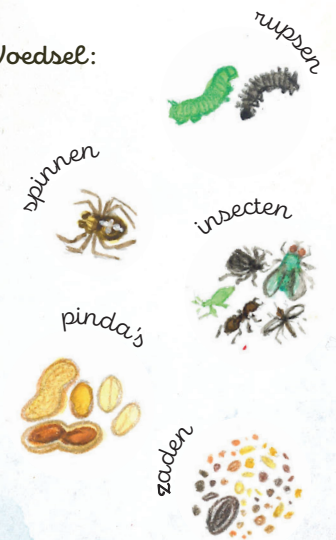 Voedsel:
rupsen
spinnen
insecten
pinda's
zaden